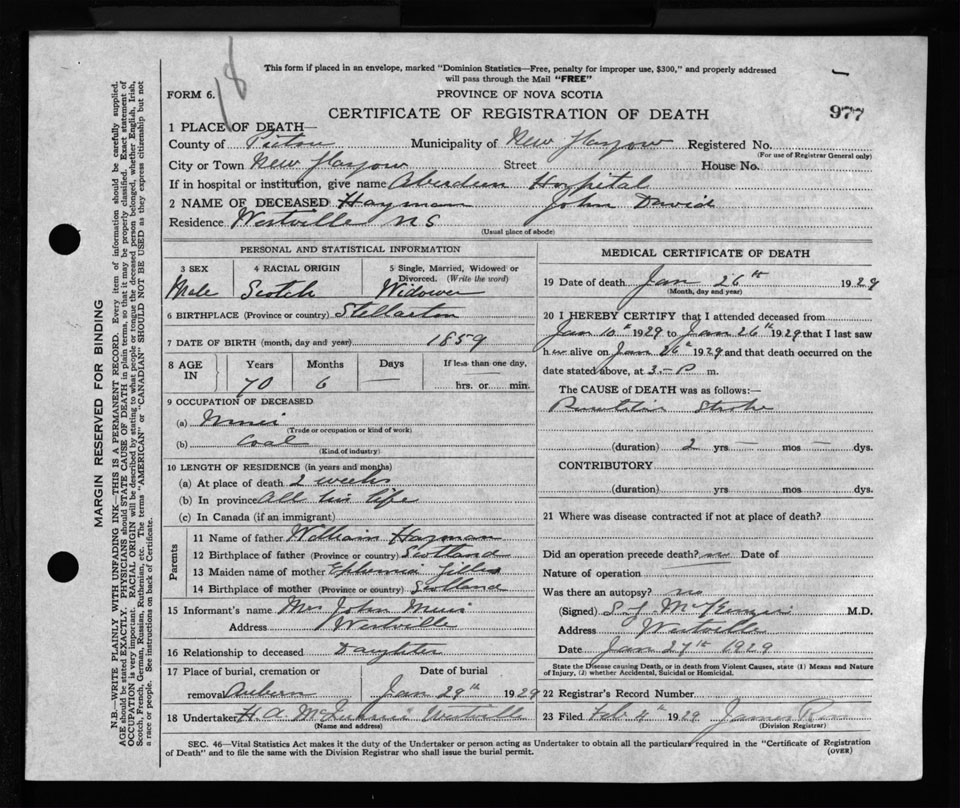 18
This form if placed in an envelope, marked "Dominion Statistics—Free, penalty for improper use, $300," and properly addressed
will pass through the Mail "FREE"
FORM 6.
PROVINCE OF NOVA SCOTIA
CERTIFICATE OF REGISTRATION OF DEATH
977
1 PLACE OF DEATH—
County of Pictou Municipality of New Glasgow Registered No.
(For use of Registrar General only)
City or Town New Glasgow Street House No.
If in hospital or institution, give name Aberdeen Hospital
2 NAME OF DECEASED Hayman John David
Residence Westville N S
(Usual place of abode)
PERSONAL AND STATISTICAL INFORMATION
3 SEX
Male
4 RACIAL ORIGIN
Scotch
5 Single, Married, Widowed or
Divorced. (Write the word)
Widower
6 BIRTHPLACE (Province or country) Stellarton
7 DATE OF BIRTH (month, day and year) 1859
8 AGE IN
Years Months Days If less than one day,
70 6 — hrs. or min.
9 OCCUPATION OF DECEASED
(a) Miner
(Trade or occupation or kind of work)
(b) Coal
(Kind of industry)
10 LENGTH OF RESIDENCE (in years and months)
(a) At place of death 2 weeks
(b) In province All his life
(c) In Canada (if an immigrant)
Parents
11 Name of father William Hayman
12 Birthplace of father (Province or country) Scotland
13 Maiden name of mother Ephemia Gillis
14 Birthplace of mother (Province or country) Scotland
15 Informant's name Mrs John Muir
Address Westville
16 Relationship to deceased Daughter
17 Place of burial, cremation or Date of burial
removal Auburn Jan 29th 1929
18 Undertaker H A Westville
(Name and address)
MEDICAL CERTIFICATE OF DEATH
19 Date of death Jan 26th 1929
(Month, day and year)
20 I HEREBY CERTIFY that I attended deceased from
Jan 10th 1929 to Jan 26th 1929 that I last saw
him alive on Jan 26th 1929 and that death occurred on
date stated above, at 3.–P m.
The CAUSE of DEATH was as follows:—
Stroke
(duration) 2 yrs — mos — dys.
CONTRIBUTORY
(duration) yrs mos dys.
21 Where was disease contracted if not at place of death?
Did an operation precede death? no Date of
Nature of operation
Was there an autopsy? no
(Signed) S.J. McKenzie M.D.
Address Westville
Date Jan 27th 1929
State the Disease causing Death, or in death from Violent Causes, state (1) Means and Nature
of Injury, (2) whether Accidental, Suicidal or Homicidal.
22 Registrar's Record Number
23 Filed Feb 4th 1929 James
(Division Registrar)
SEC. 46—Vital Statistics Act makes it the duty of the Undertaker or person acting as Undertaker to obtain all the particulars required in the "Certificate of Registration
of Death" and to file the same with the Division Registrar who shall issue the burial permit.
(OVER)
MARGIN RESERVED FOR BINDING
N.B.—WRITE PLAINLY WITH UNFADING INK—THIS IS A PERMANENT RECORD. Every item of information should be carefully supplied.
AGE should be stated EXACTLY. PHYSICIANS should STATE CAUSE OF DEATH in plain terms, so that it may be properly classified. Exact statement of
OCCUPATION is very important. RACIAL ORIGIN will be described by stating to what people or tongue the deceased person belonged, whether English, Irish,
Scotch, French, German, Russian, Ruthenian, etc. The terms "AMERICAN" or "CANADIAN" SHOULD NOT BE USED as they express citizenship but not
a race or people. See instructions on back of Certificate.